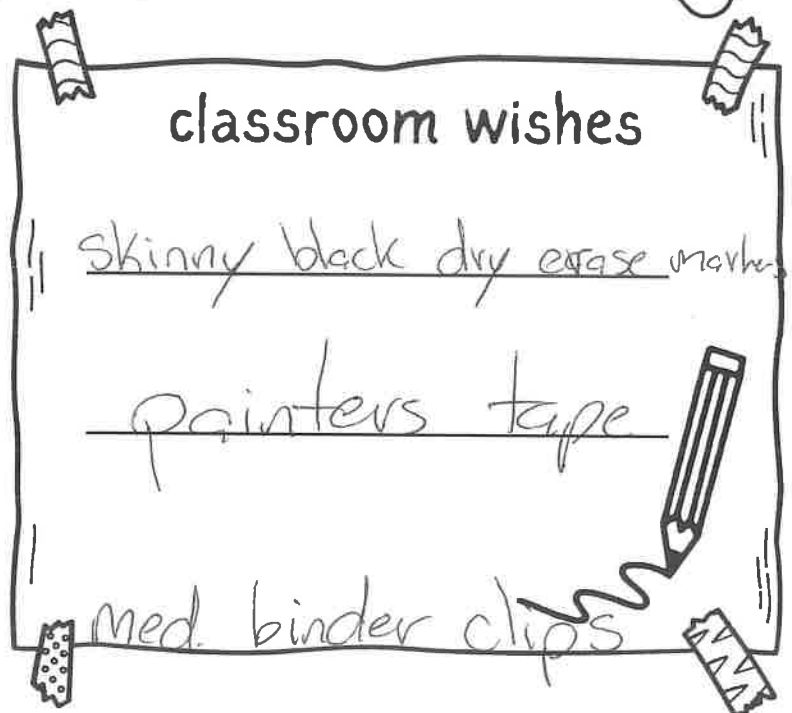 classroom wishes
skinny black dry erase markers
painters tape
med. binder clips